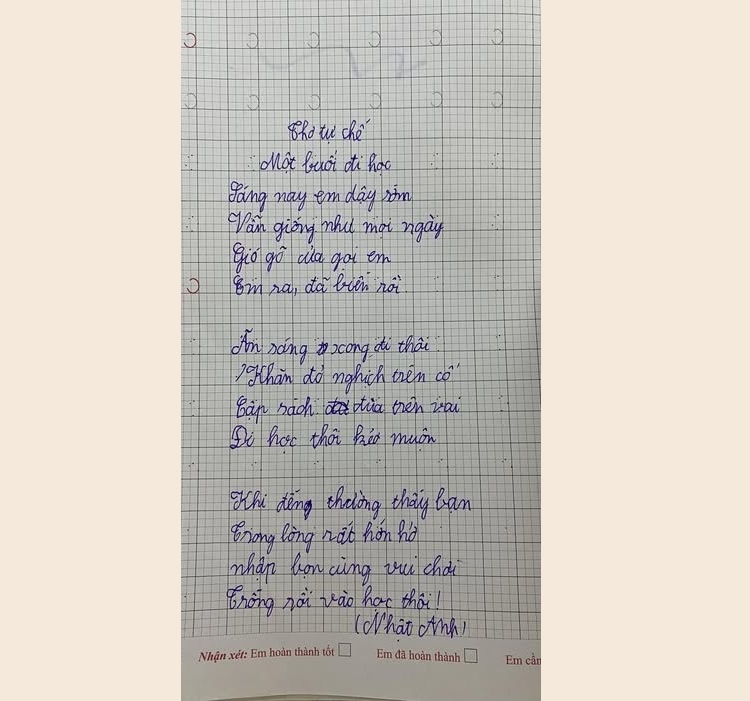 Thơ tự chế
Một buổi đi học
Sáng nay em dậy sớm
Vẫn giống như mọi ngày
Gió gõ cửa gọi em
Em ra, đã biến rồi.
Ăn sáng xong, đi thôi
Khăn đỏ nghịch trên cổ
Cặp sách đùa trên vai
Đi học thôi kẻo muộn
Khi đến trường thấy bạn
Trong lòng rất hớn hở
nhập bọn cùng vui chơi
Trống rồi vào học thôi!
(Nhật Anh)
Nhận xét: Em hoàn thành tốt Em đã hoàn thành Em cần